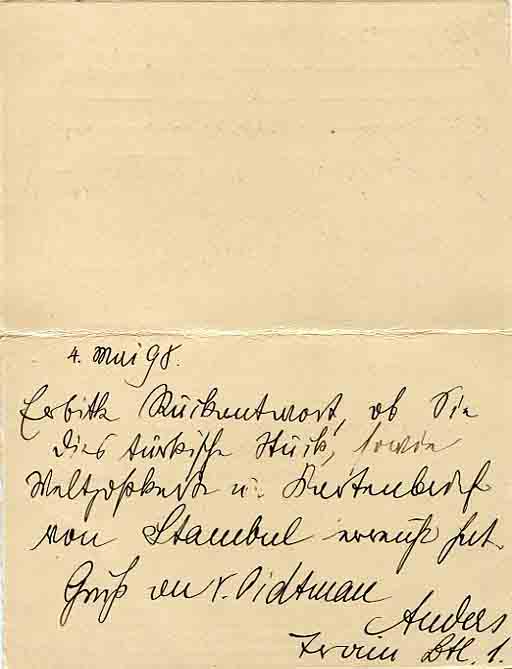 4. Mai 98.
Erbitte Rückantwort, ob Sie
dies türkische Stück, sowie
Weltpostkarte u. Kartenbrief
von Stambul erreicht hat.
Gruß an v. Pidtman
Anders
Train Btl. 1.